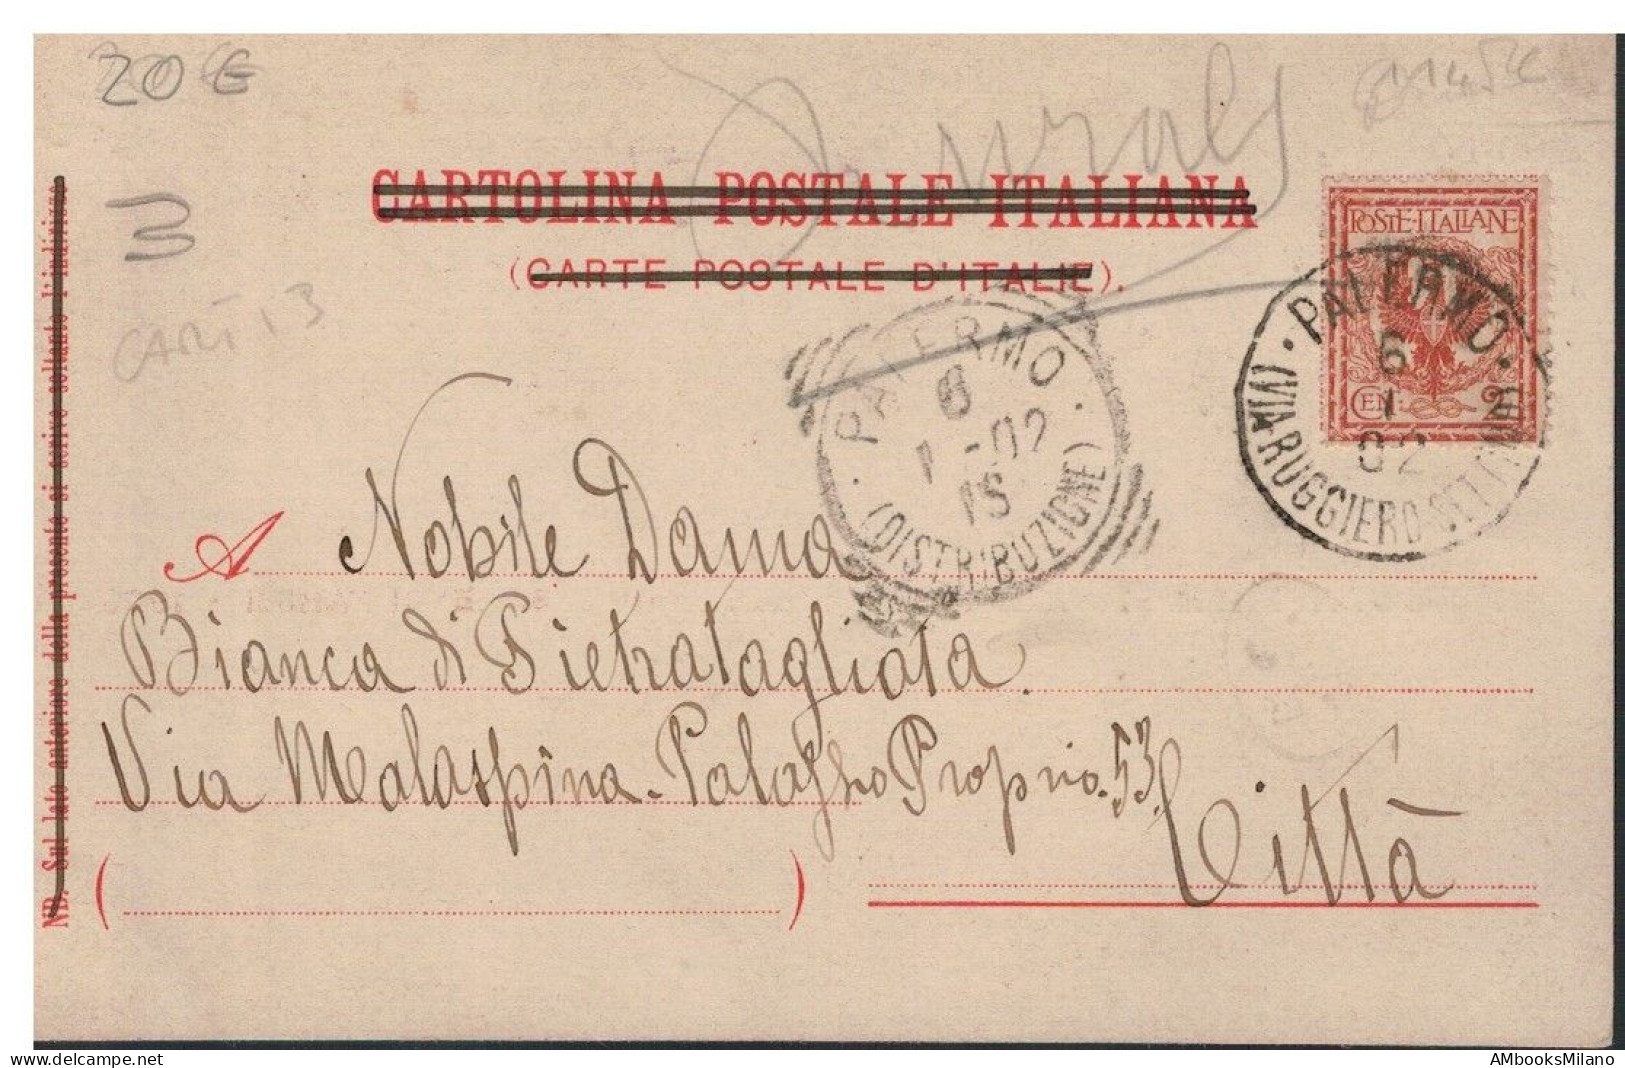 20 €
3
CARTOLINA POSTALE ITALIANA
(CARTE POSTALE D'ITALIE).
CART 13
POSTE·ITALIANE
CEN. 2
PALERMO
6
1
02
(VIA RUGGIERO SETTIMO)
PALERMO
6
1 -02
1S
(DISTRIBUZIONE)
NB. Sul lato anteriore della presente si scrive soltanto l'indirizzo
A Nobile Dama
Bianca di Pietratagliata
Via Malaspina - Palazzo Proprio. 53.
Città
( )
delcampe.net
AMbooksMilano